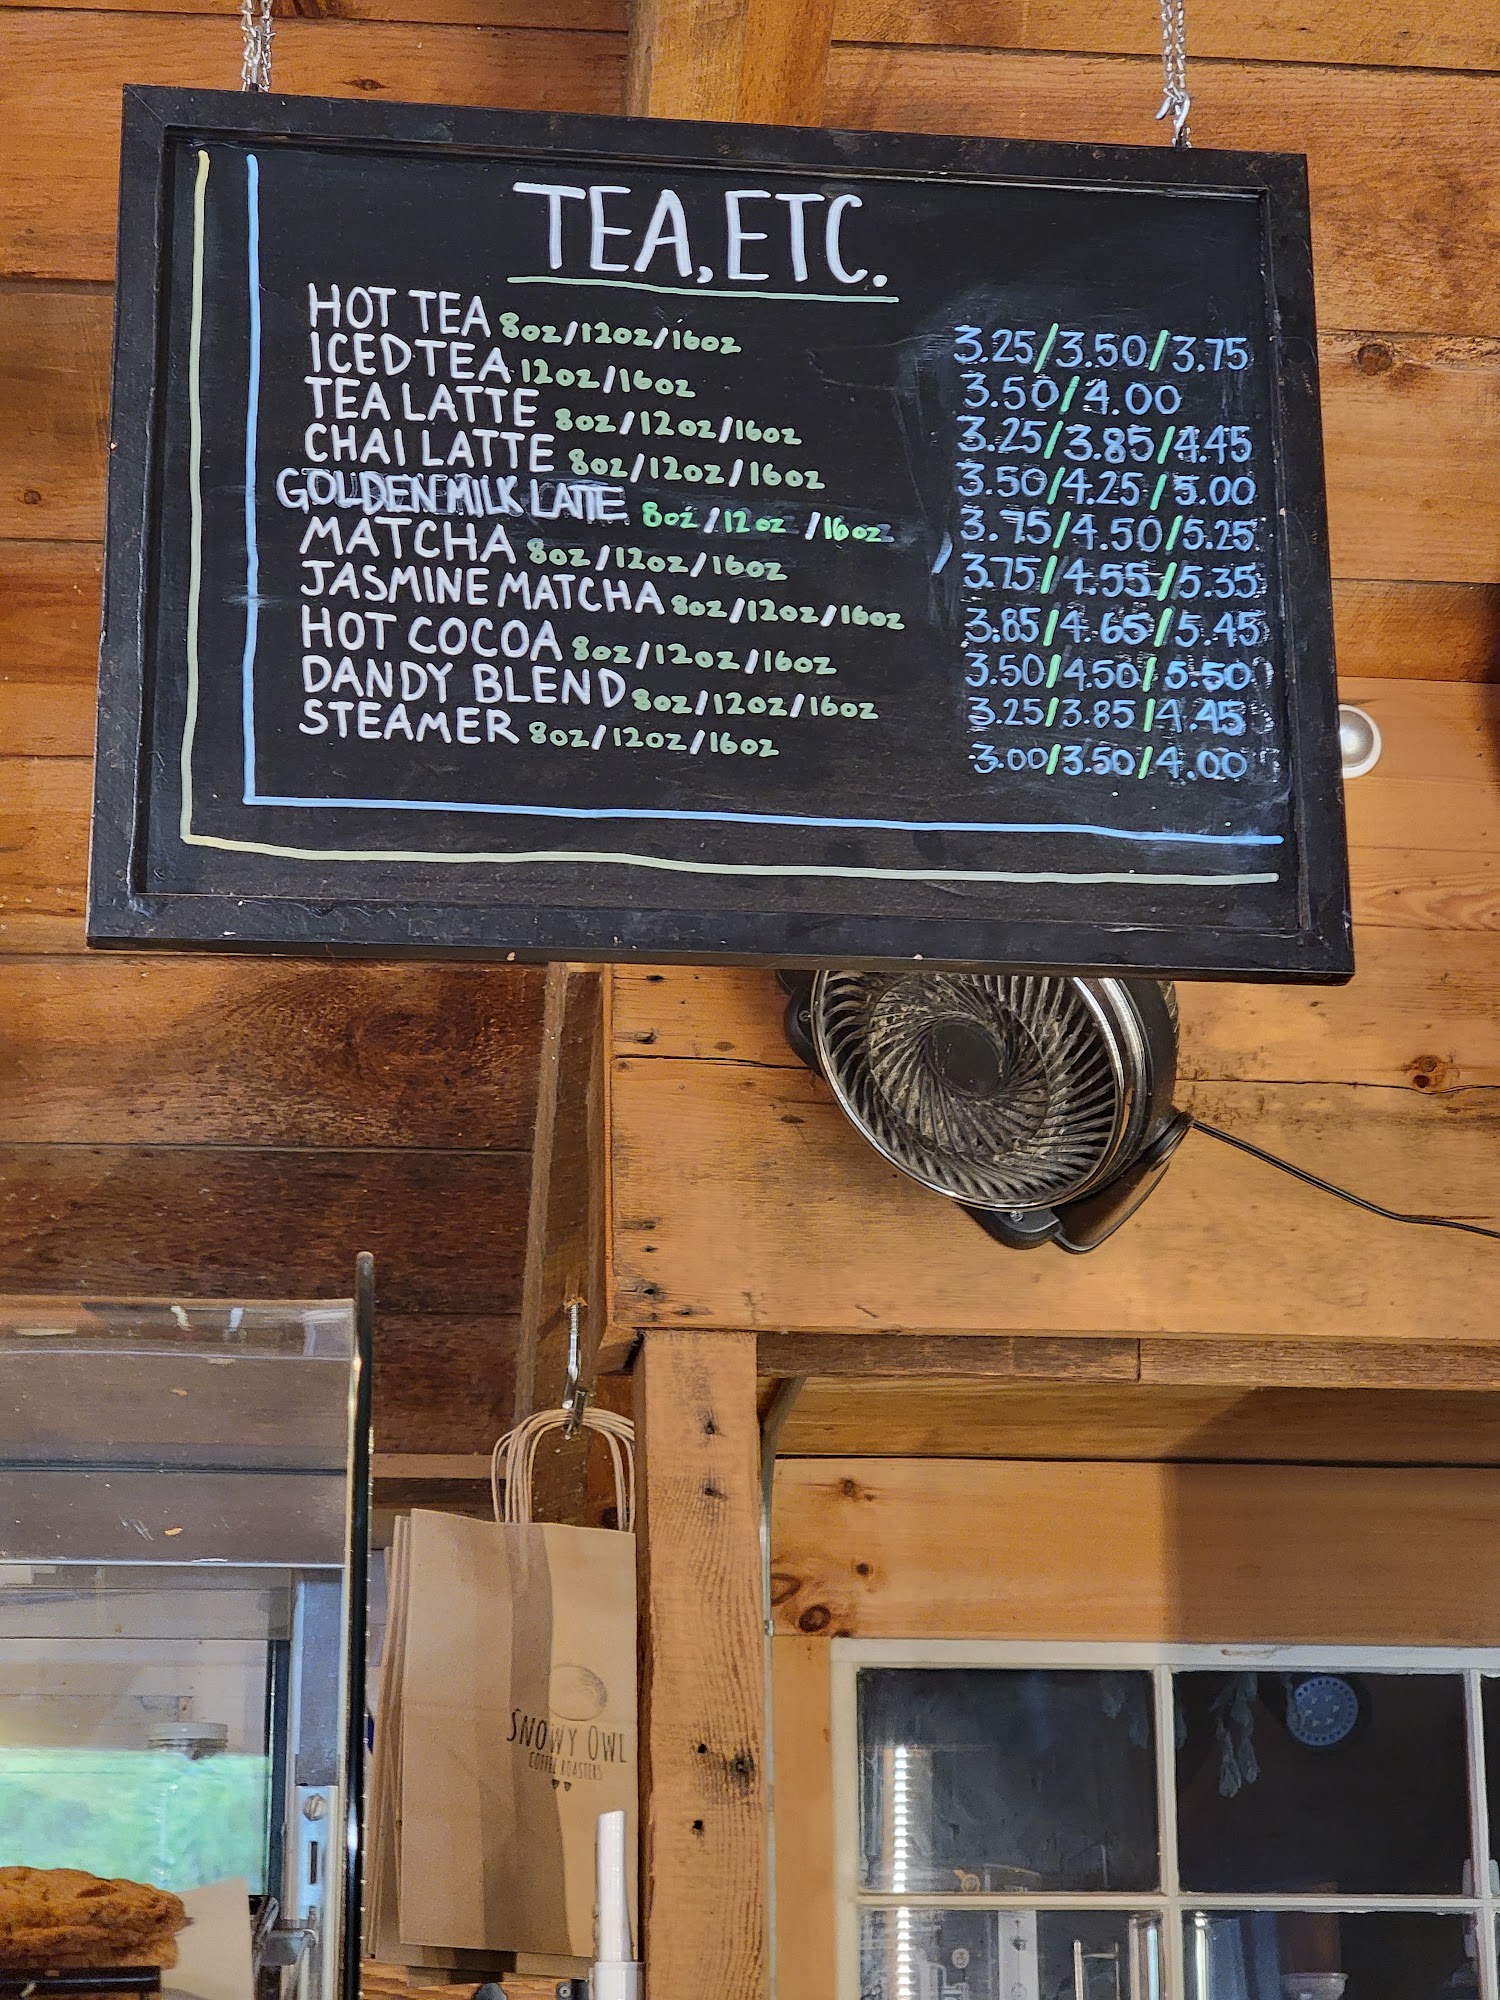 TEA, ETC.
HOT TEA 8oz/12oz/16oz 3.25/3.50/3.75
ICED TEA 12oz/16oz 3.50/4.00
TEA LATTE 8oz/12oz/16oz 3.25/3.85/4.45
CHAI LATTE 8oz/12oz/16oz 3.50/4.25/5.00
GOLDEN MILK LATTE 8oz/12oz/16oz 3.75/4.50/5.25
MATCHA 8oz/12oz/16oz 3.75/4.55/5.35
JASMINE MATCHA 8oz/12oz/16oz 3.85/4.65/5.45
HOT COCOA 8oz/12oz/16oz 3.50/4.50/5.50
DANDY BLEND 8oz/12oz/16oz 3.25/3.85/4.45
STEAMER 8oz/12oz/16oz 3.00/3.50/4.00
SNOWY OWL
COFFEE ROASTERS